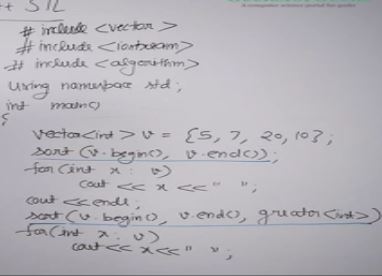 STL
A computer science portal for geeks
# include <vector>
# include <iostream>
# include <algorithm>
Using namespace std;
int main()
{
vector<int> v = {5, 7, 20, 10};
sort (v.begin(), v.end());
for(int x : v)
cout << x << " ";
cout << endl;
sort (v.begin(), v.end(), greater<int>)
for(int x : v)
cout << x << " ";